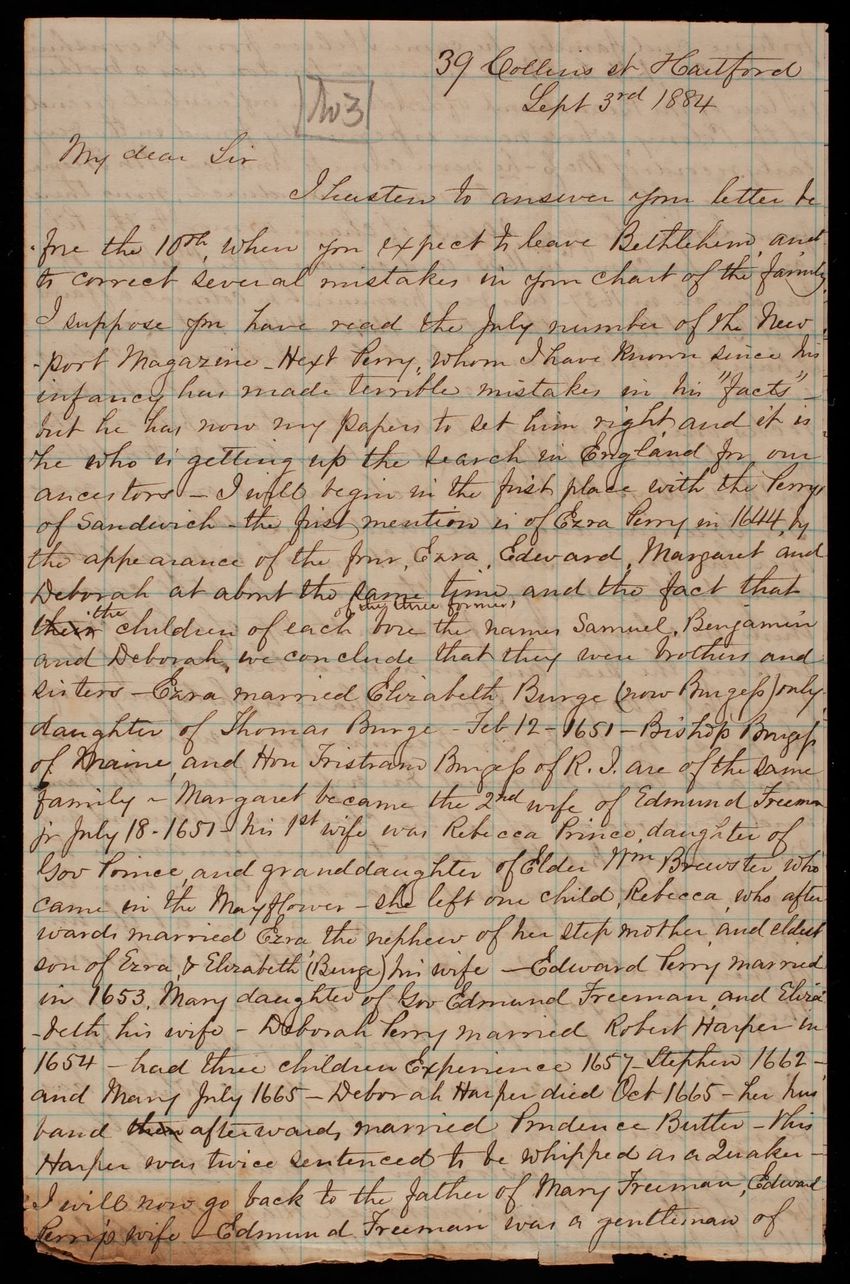 39 Collins st Hartford
Sept 3rd 1884
No 3
My dear Sir
I hasten to answer your letter be
-fore the 10th, when you expect to leave Bethlehem, and
to correct several mistakes in your chart of the family.
I suppose you have read the July number of the New
-port Magazine - Hext Perry, whom I have known since his
infancy has made terrible mistakes in his "facts" -
but he has now my papers to set him right, and it is
he who is getting up the search in England for our
ancestors - I will begin in the first place with the Perrys
of Sandwich - the first mention is of Ezra Perry in 1644, by
the appearance of the four, Ezra, Edward, Margaret and
Deborah at about the same time, and the fact that
their the children of each of the three former, bore the names Samuel, Benjamin
and Deborah, we conclude that they were brothers and
sisters - Ezra married Elizabeth Burge (now Burgess) only
daughter of Thomas Burge - Feb 12 - 1651 - Bishop Burgess
of Maine, and Hon Tristram Burgess of R. I. are of the same
family - Margaret became the 2nd wife of Edmund Freeman
jr July 18 - 1651 - his 1st wife was Rebecca Prince, daughter of
Gov Prince, and granddaughter of Elder Wm Brewster who
came in the Mayflower - she left one child, Rebecca, who after
wards married Ezra, the nephew of her step mother, and eldest
son of Ezra, & Elizabeth (Burge) his wife - Edward Perry married
in 1653, Mary daughter of Gov Edmund Freeman, and Eliza
-beth his wife - Deborah Perry married Robert Harper in
1654 - had three children Experience 1657 - Stephen 1662 -
and Mary July 1665 - Deborah Harper died Oct 1665 - her hus
band then afterwards married Prudence Butler - this
Harper was twice sentenced to be whipped as a Quaker -
I will now go back to the father of Mary Freeman, Edward
Perry's wife - Edmund Freeman was a gentleman of